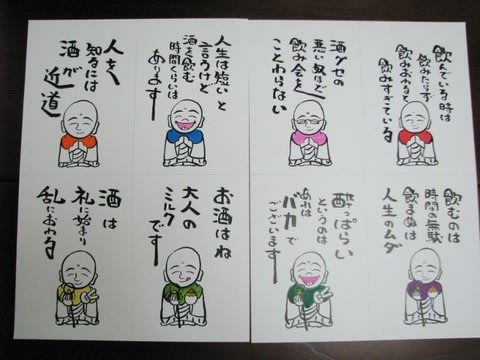 飲んでいる時は
飲みたらず
飲みおわると
飲みすぎている
酒グセの
悪い奴ほど
飲み会を
ことわらない
人生は短いと
言うけど
酒を飲む
時間くらいは
あります
人を
知るには
酒が
近道
飲むのは
時間の無駄
飲まぬは
人生のムダ
酔っぱらい
というのは
あれは
バカで
ございます
お酒はね
大人の
ミルク
です
酒は
礼に始まり
乱におわる